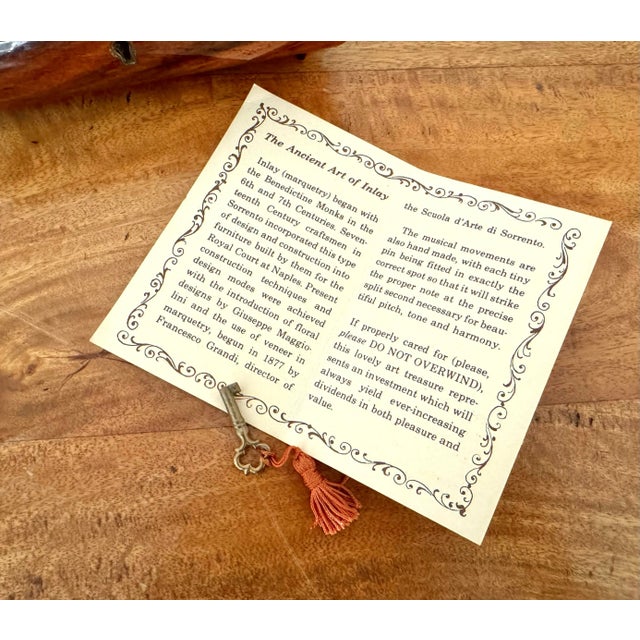 The Ancient Art of Inlay
Inlay (marquetry) began with
the Benedictine Monks in the
6th and 7th Centuries. Seven-
teenth Century craftsmen in
Sorrento incorporated this type
of design and construction into
furniture built by them for the
Royal Court at Naples. Present
construction techniques and
design modes were achieved
with the introduction of floral
designs by Giuseppe Maggio-
lini and the use of veneer in
marquetry, begun in 1877 by
Francesco Grandi, director of
the Scuola d'Arte di Sorrento.
The musical movements are
also hand made, with each tiny
pin being fitted in exactly the
correct spot so that it will strike
the proper note at the precise
split second necessary for beau-
tiful pitch, tone and harmony.
If properly cared for (please,
please DO NOT OVERWIND),
this lovely art treasure repre-
sents an investment which will
always yield ever-increasing
dividends in both pleasure and
value.